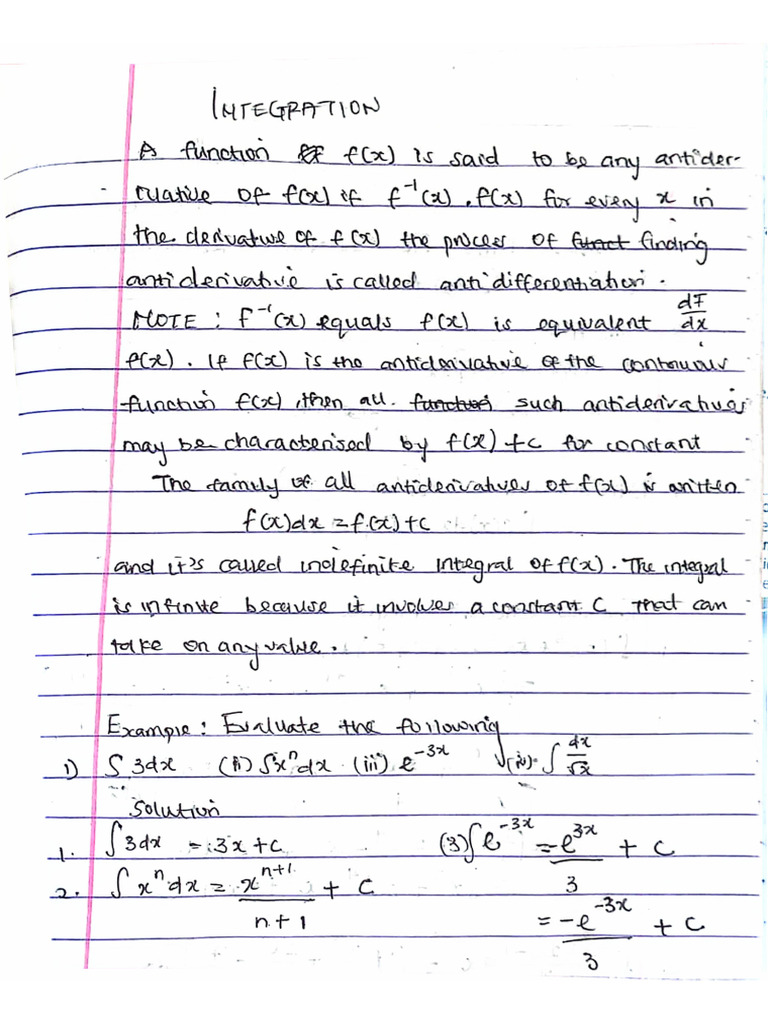 INTEGRATION
A function f(x) is said to be any antider-
ivative of f(x) if f⁻¹(x) . f(x) for every x in
the derivative of f(x) the process of funct finding
antiderivative is called antidifferentiation.
NOTE : F⁻¹(x) equals f(x) is equivalent dF/dx
f(x). If f(x) is the antiderivative of the continuous
function f(x), then all functions such antiderivatives
may be characterised by f(x) + c for constant
The family of all antiderivatives of f(x) is written
f(x)dx = f(x) + c
and it's called indefinite integral of f(x). The integral
is infinite because it involves a constant C that can
take on any value.
Example : Evaluate the following
1) ∫ 3dx (ii) ∫xⁿdx (iii) e⁻³ˣ (iv) ∫ dx/√x
Solution
1. ∫3dx = 3x + c (3) ∫e⁻³ˣ = e³ˣ/3 + C
2. ∫xⁿdx = xⁿ⁺¹/n+1 + C
= -e⁻³ˣ/3 + C